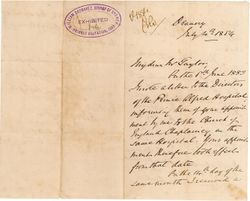 EXHIBITED
Deanery
July 4th 1884
My dear Mr Taylor,
On the 1st June 1883
I wrote a letter to the Directors
of the Prince Alfred Hospital
informing them of your appoint
ment by me to the Church of
England Chaplaincy in the
same Hospital. Your appoint
ment therefore took effect
from that date.
On the 14th day of the
same month I